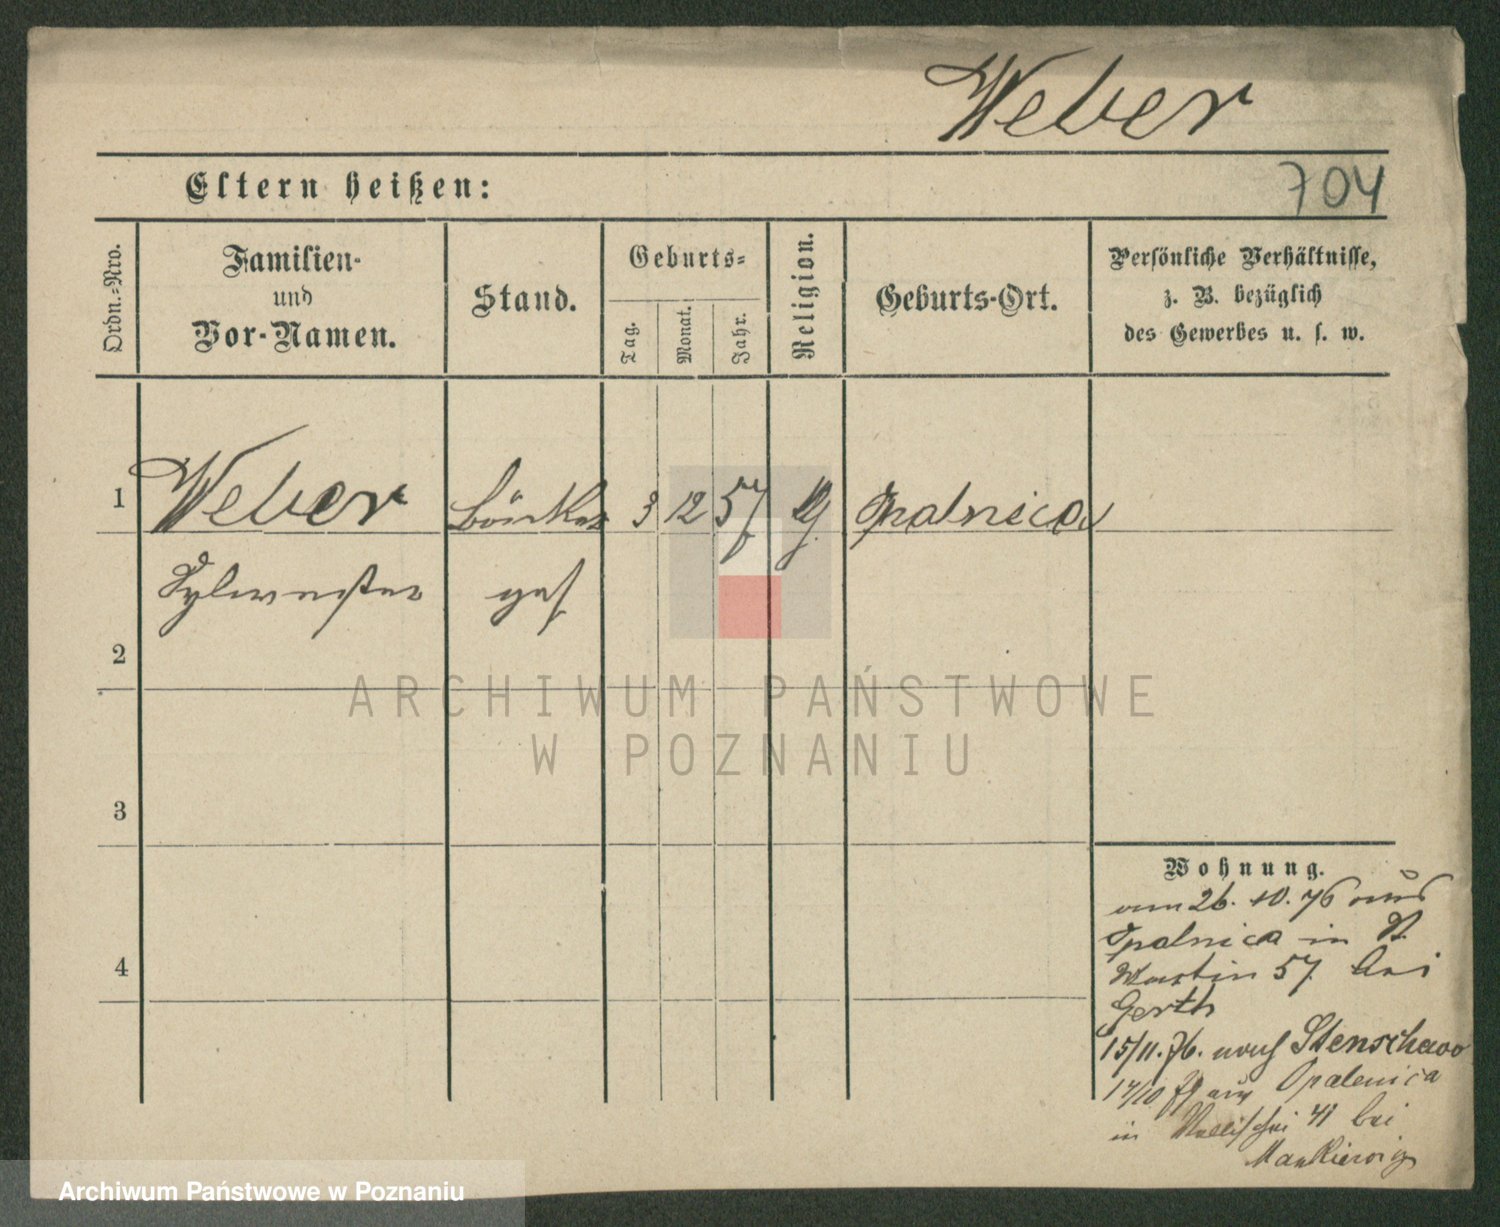 Weber
704
Eltern heißen:
Ordn.-Nro.
Familien-
und
Vor-Namen.
Stand.
Geburts-
Tag.
Monat.
Jahr.
Religion.
Geburts-Ort.
Persönliche Verhältnisse,
z. B. bezüglich
des Gewerbes u. s. w.
1
Weber
3
12
57
Opalnica
Sylwester
2
ARCHIWUM PAŃSTWOWE
W POZNANIU
3
4
Wohnung.
26. 10. 76 aus
Opalnica in St.
Martin 57 bei
Gerth
15/11. 76. nach Stenschewo
17/10 79 aus Opalenica
in Wallischei 41 bei
Mankiewicz
Archiwum Państwowe w Poznaniu